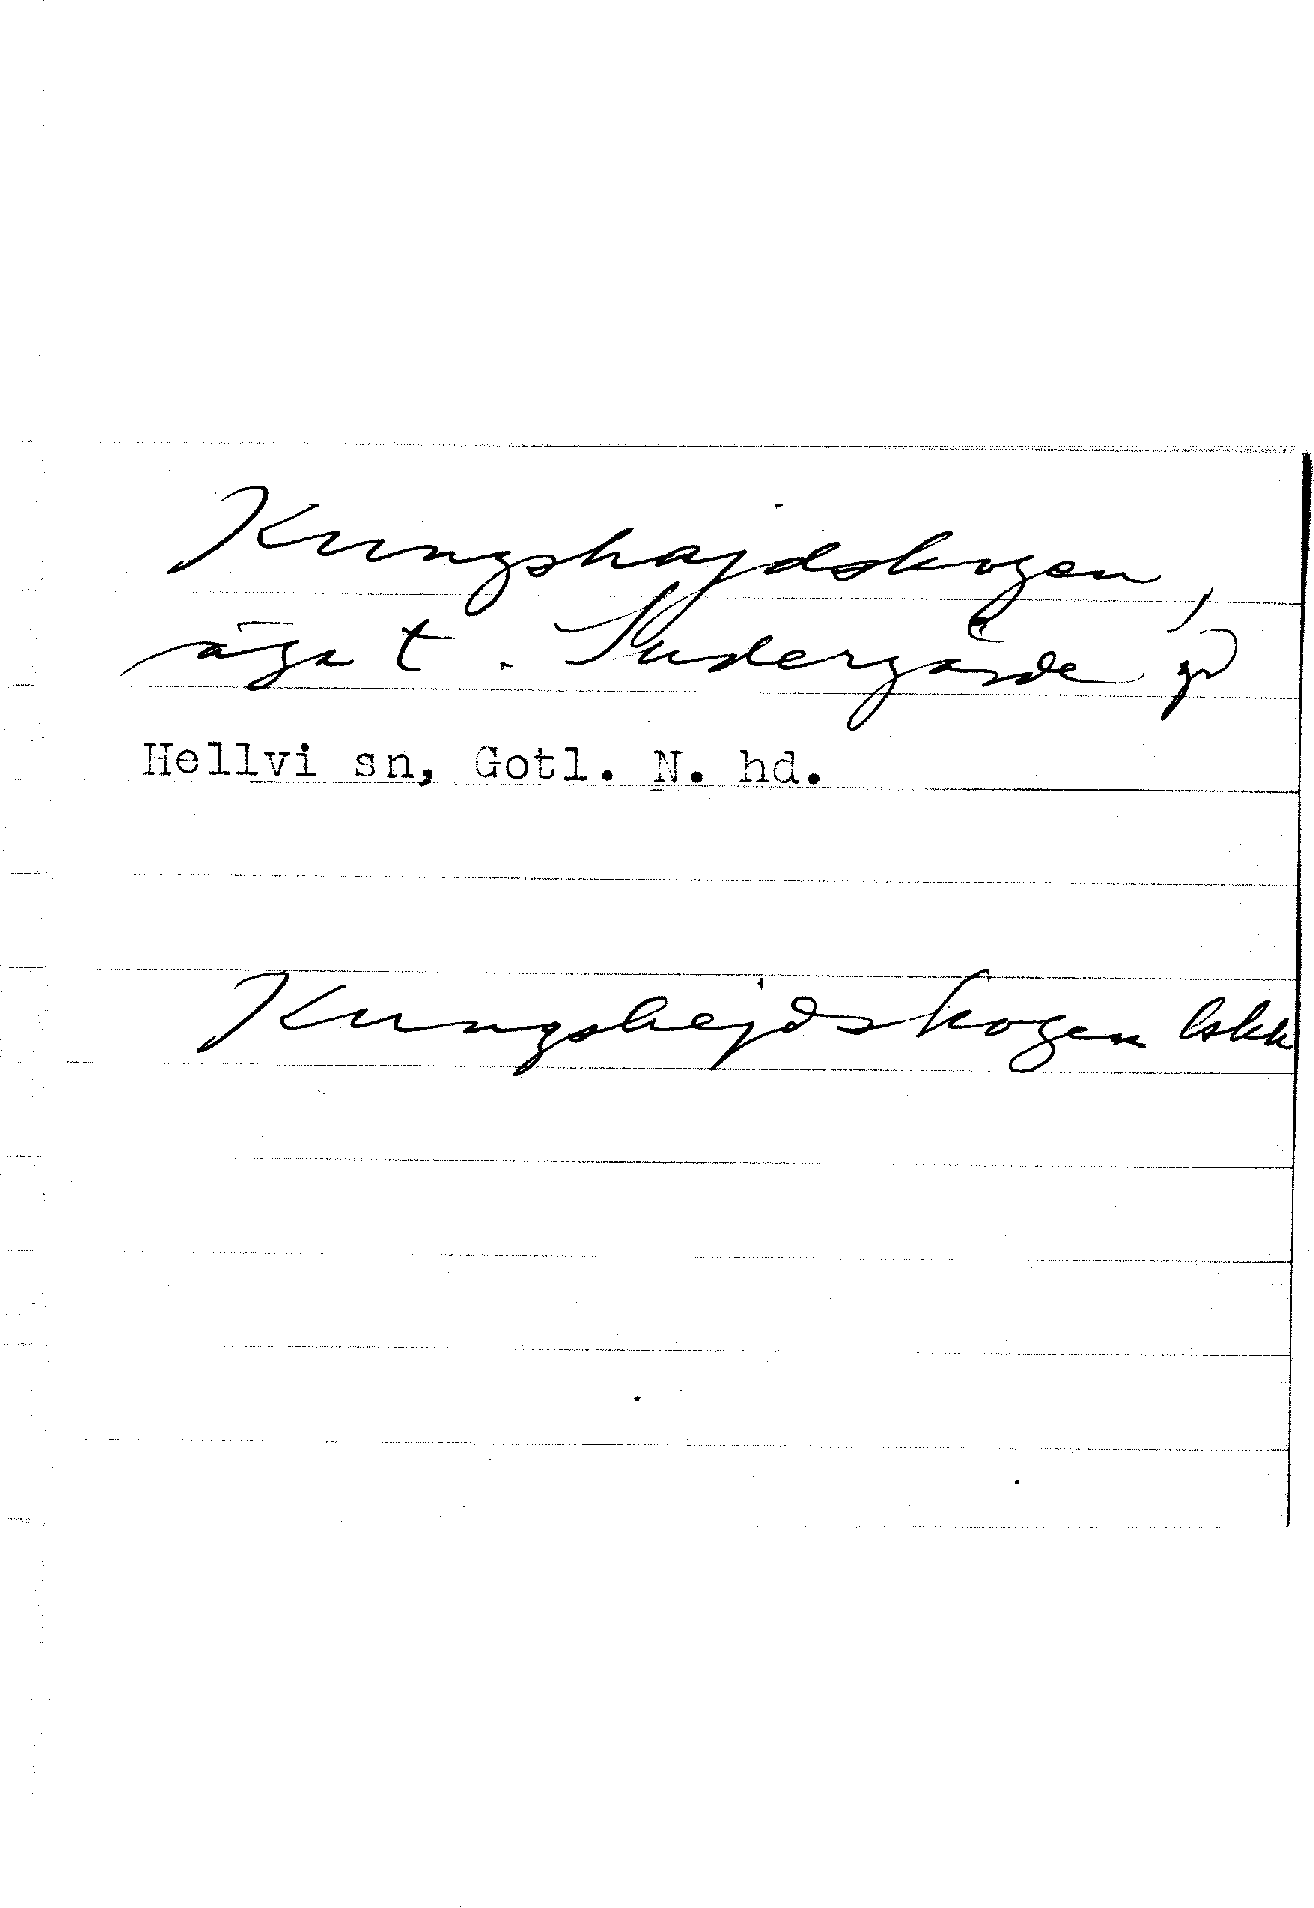 Kungshajdskogen,
äga t. Sudergårde gd
Hellvi sn, Gotl. N. hd.
Kungshejdskogen lskk